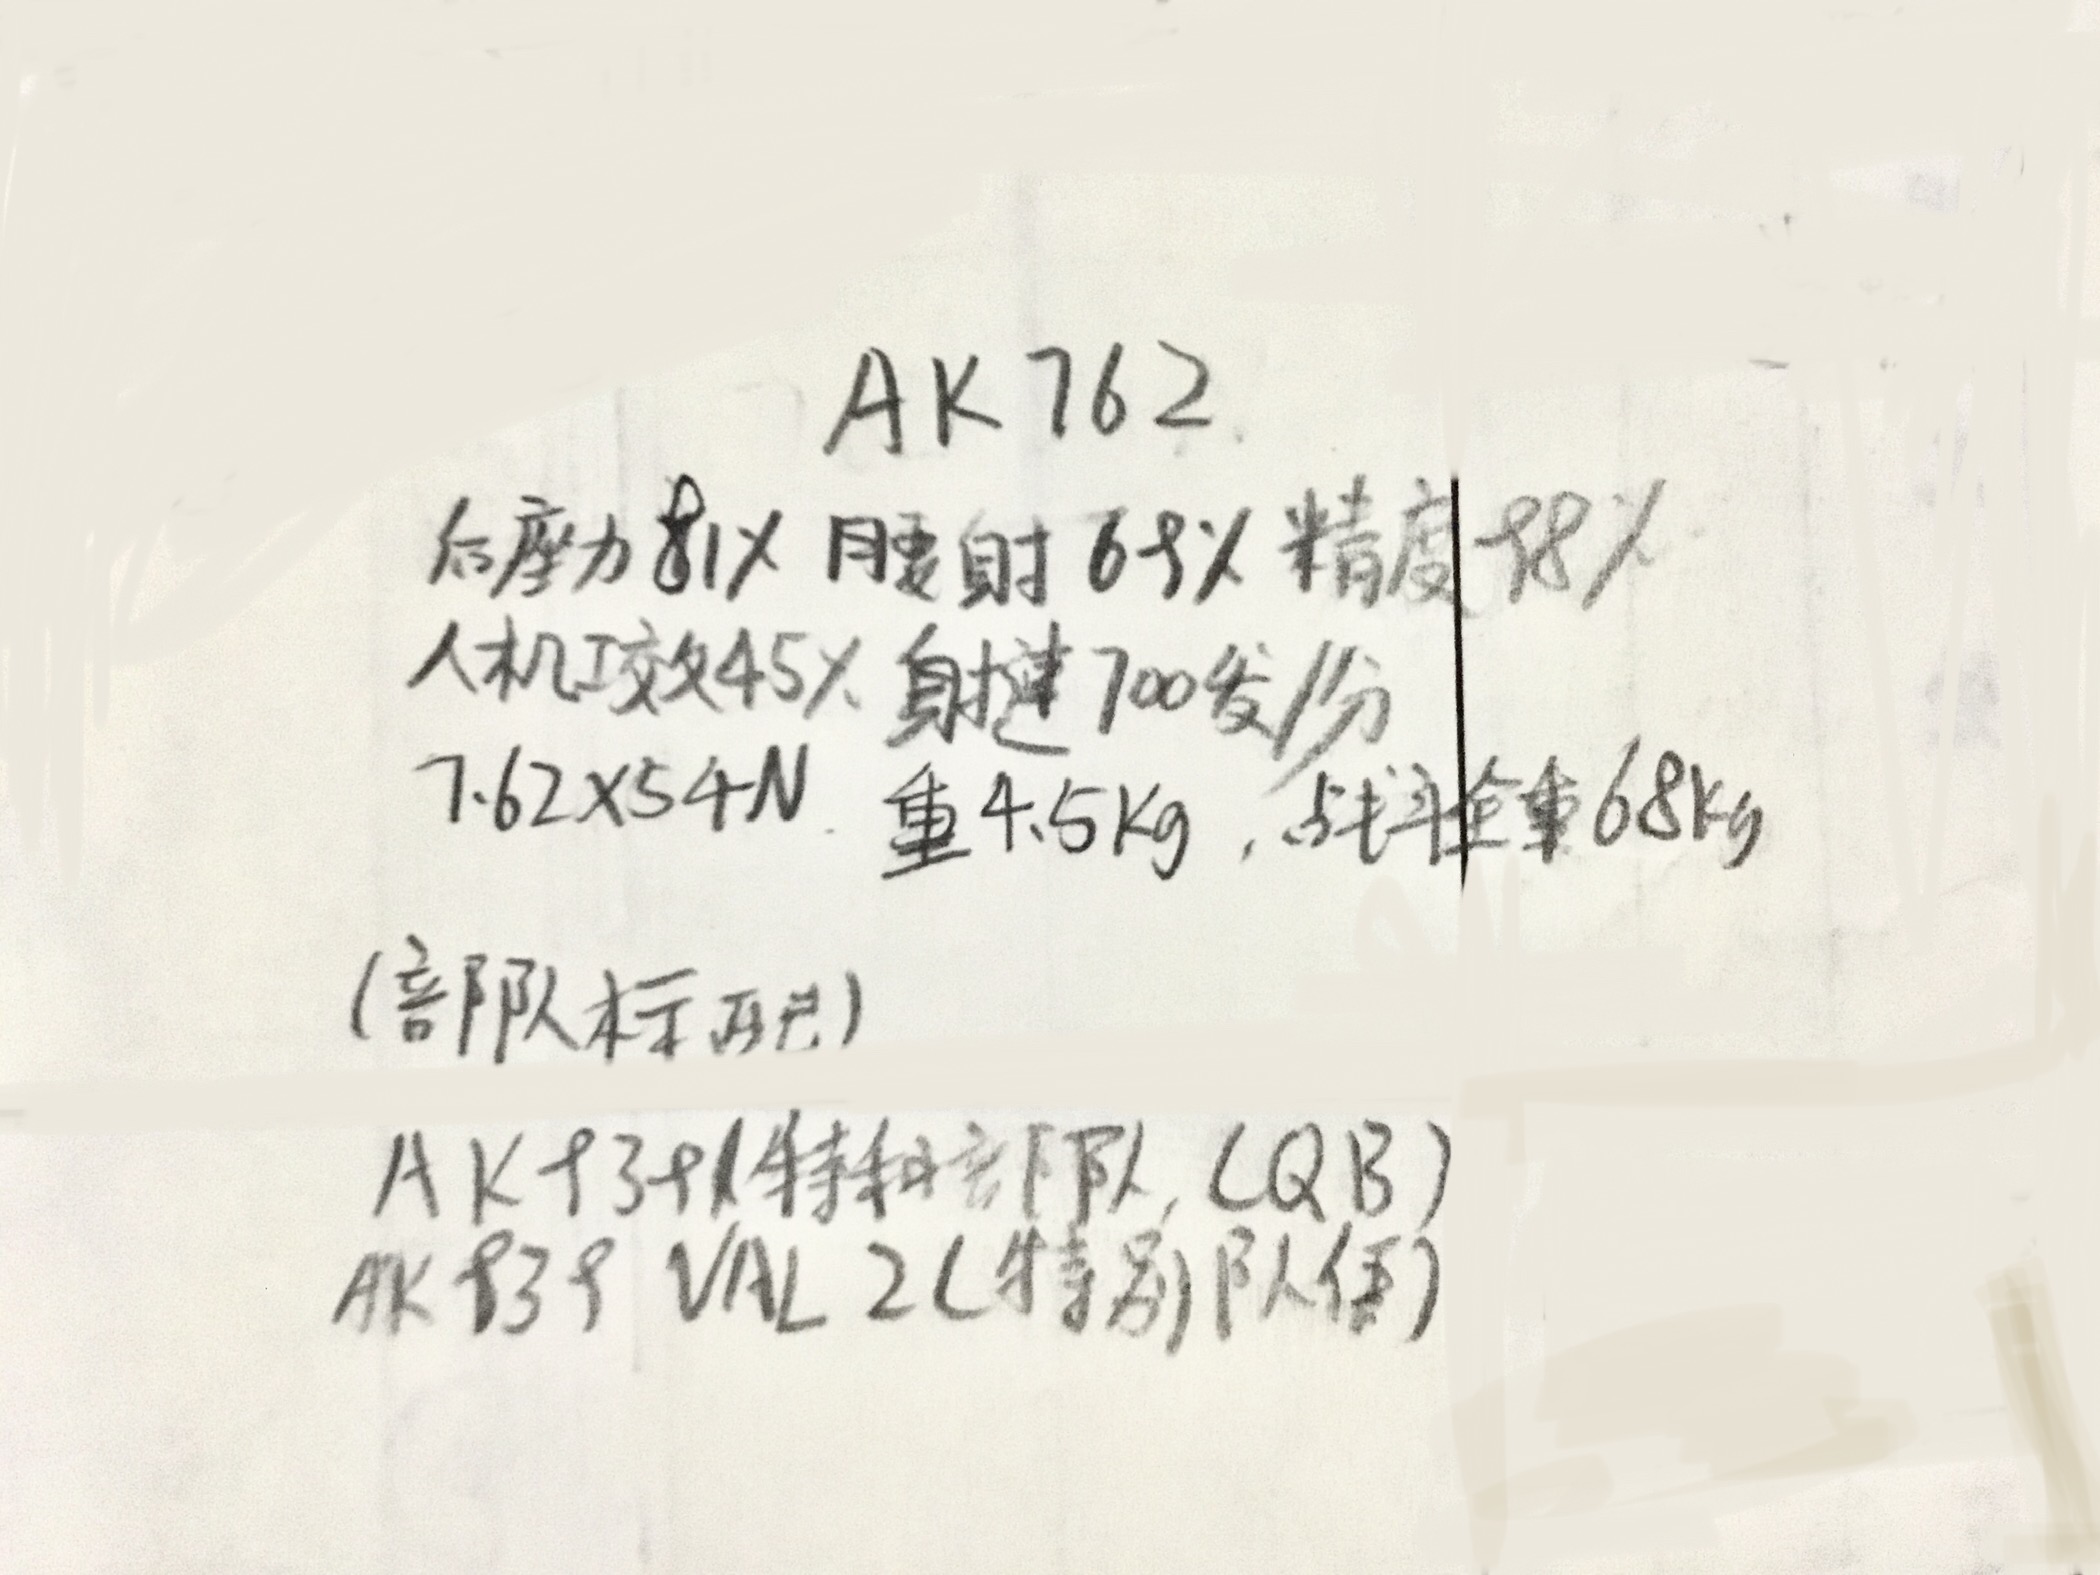 AK762
后座力81% 腰射69% 精度98%
人机工效45% 射速700发/分
7.62×54N 重4.5Kg,战斗全重68Kg
(部队标配)
AK939 特种部队(CQB)
AK939 VAL 2(特别队伍)